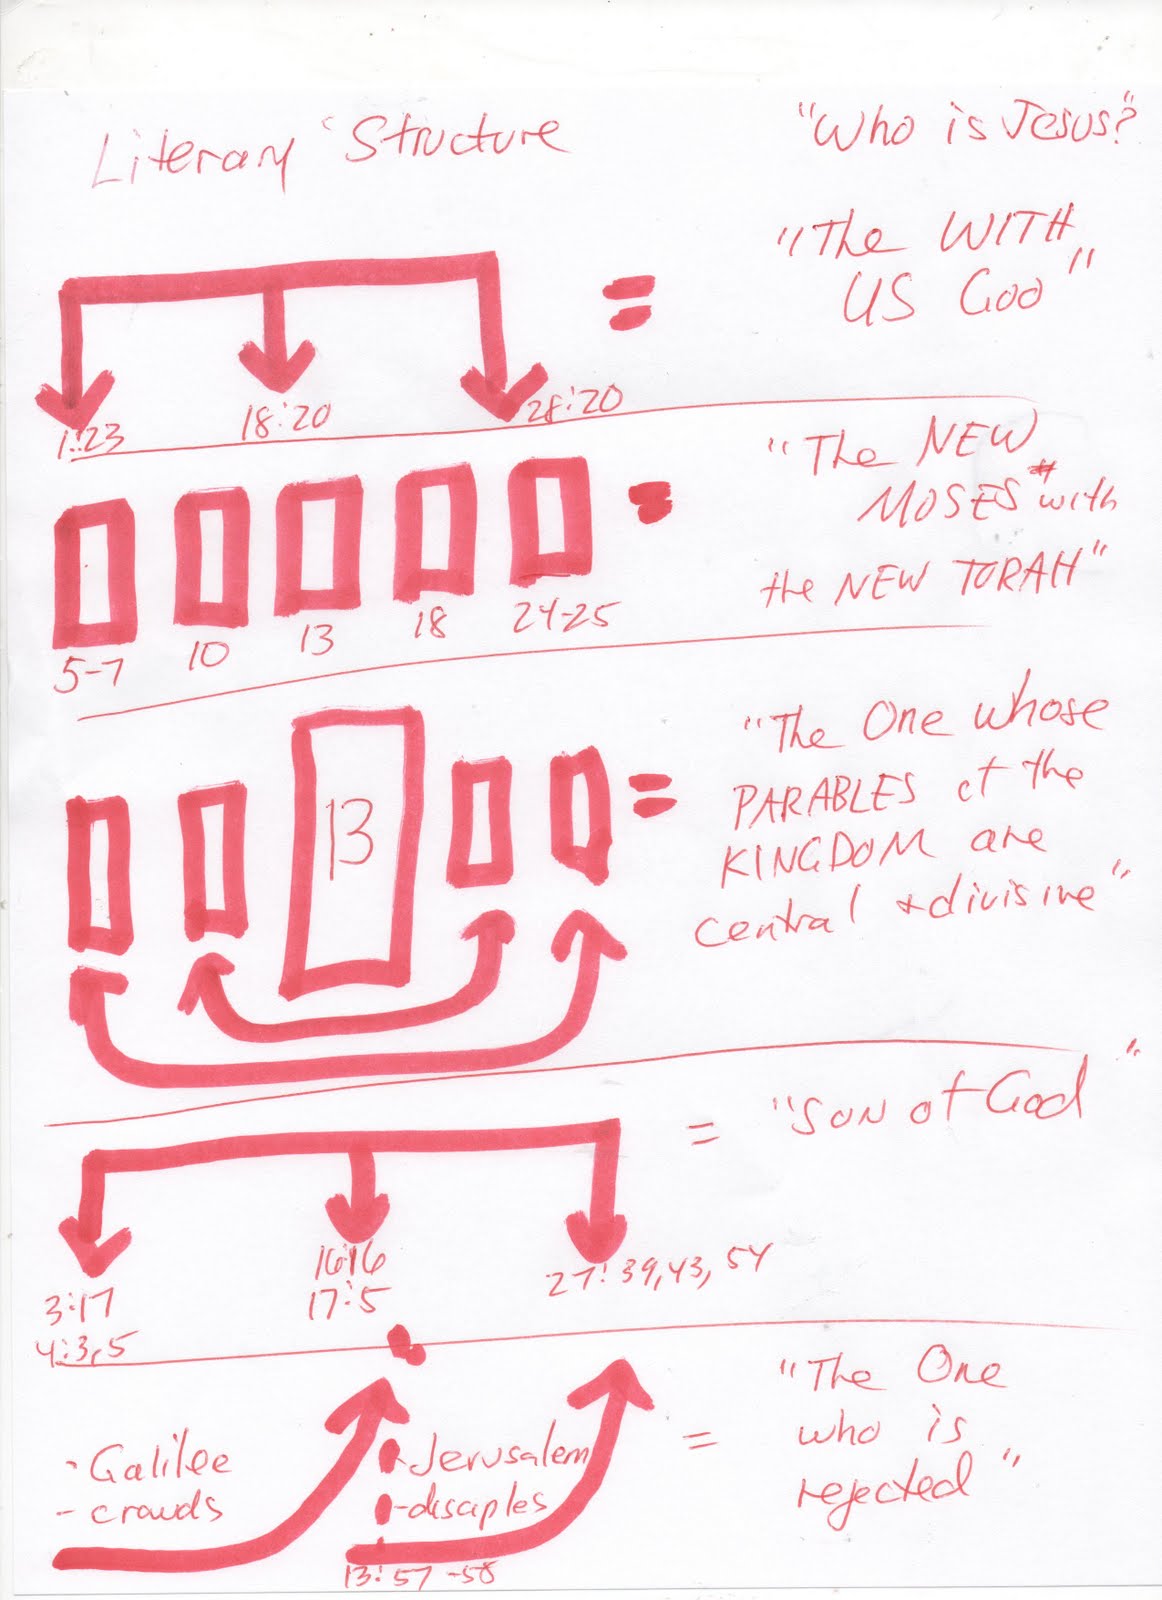 Literary Structure
"Who is Jesus?"
"The WITH
US GOD"
1:23
18:20
28:20
"The NEW
MOSES" with
the NEW TORAH"
5-7
10
13
18
24-25
"The One whose
PARABLES of the
KINGDOM are
central + divisive"
13
= "SON of God"
3:17
4:3,5
16:16
17:5
27:39,43,54
- Galilee
- crowds
- Jerusalem
- disciples
13:57-58
= "The One
who is
rejected"